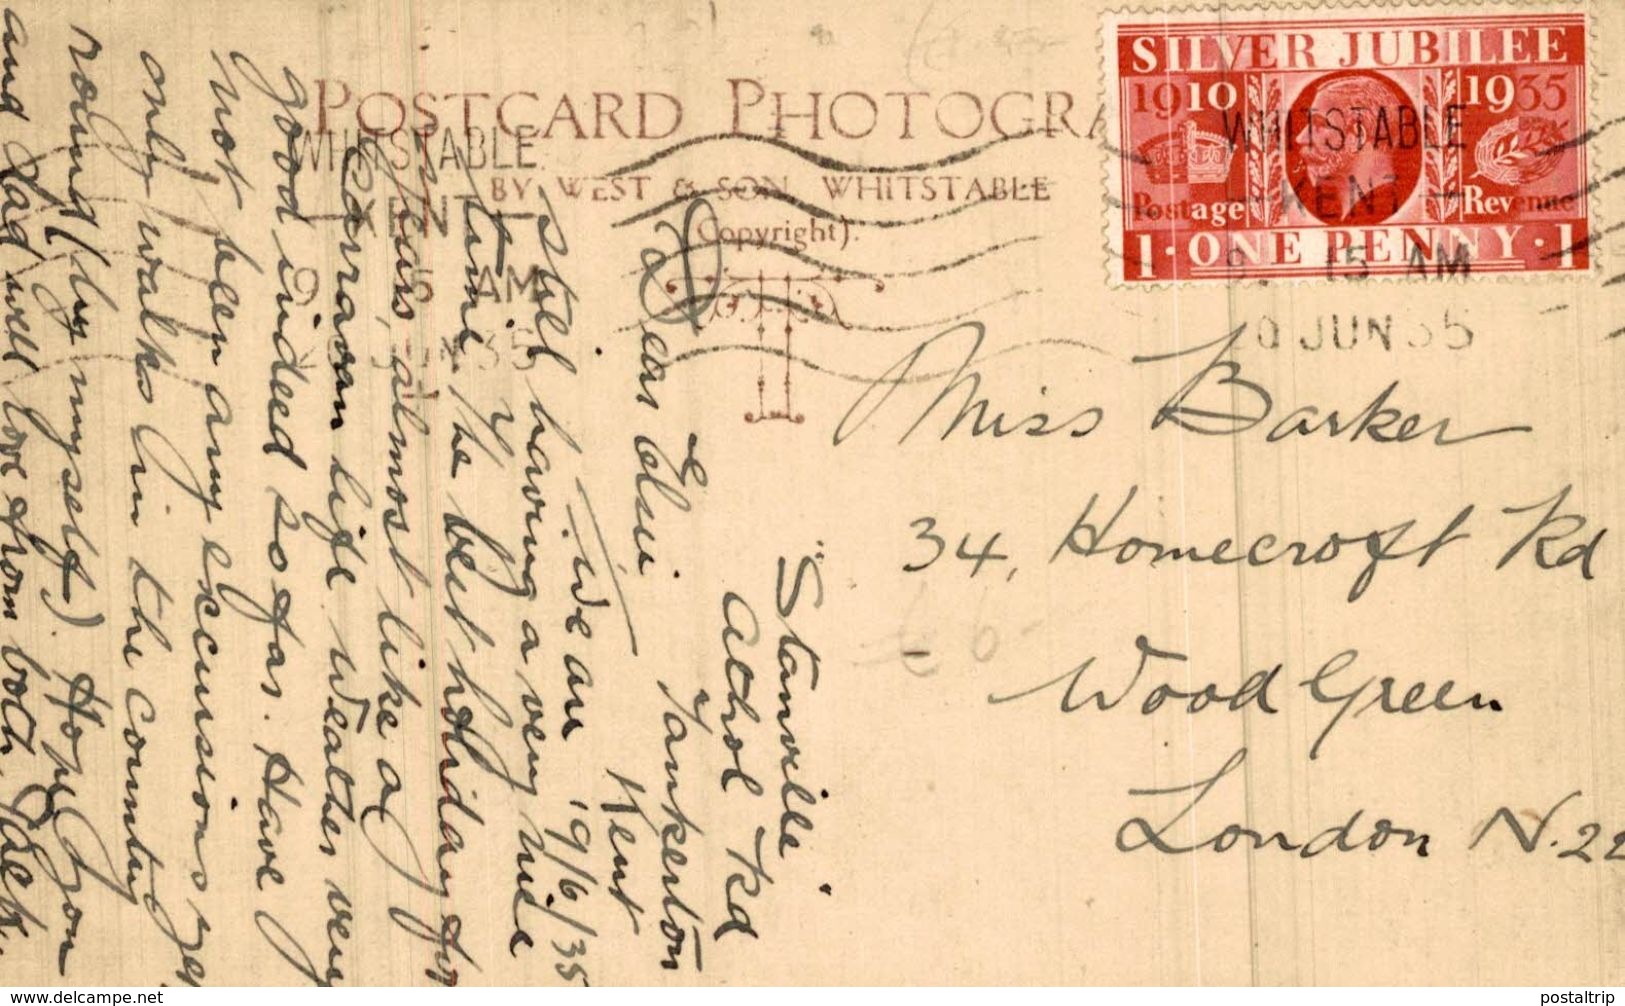 POSTCARD PHOTOGRA
BY WEST & SON, WHITSTABLE
(Copyright).
SILVER JUBILEE
1910 1935
Postage Revenue
1 · ONE PENNY · 1
WHITSTABLE
KENT
15 AM
10 JUN 35
WHITSTABLE
KENT
15 AM
35
Miss Barker
34, Homecroft Rd
Wood Green
London N.22
"Stanville"
Athol Rd
Tankerton
Kent
9/6/35
Dear Elsie.
We are
still having a very nice
time. The best holiday for
years, almost like a
Carravan life weather very
good indeed so far. Have
not been any excursions yet
only walks in the country
round (by myself). Hope you
and Dad well love from both. Jack.
£6-
www.delcampe.net
postaltrip